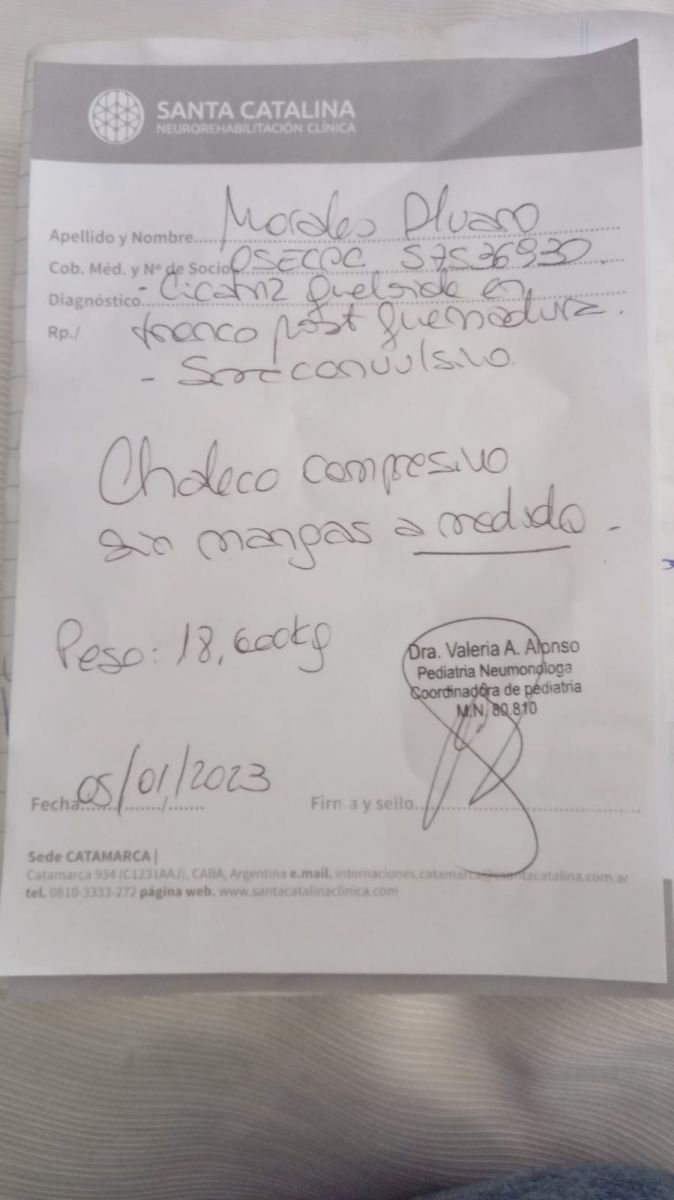 SANTA CATALINA
NEUROREHABILITACIÓN CLÍNICA
Apellido y Nombre Morales Alvaro
Cob. Méd. y Nº de Socio OSECAC 57536930.
Diagnóstico - Cicatriz queloide en
Rp./ tronco post quemadura.
- convulsivo.
Chaleco compresivo
sin mangas a medida -
Peso: 18,600kg
Dra. Valeria A. Alonso
Pediatria Neumonologa
Coordinadora de pediatria
M.N. 80.810
Fecha 05/01/2023
Firma y sello
Sede CATAMARCA |
Catamarca 934 (C1231AAJ), CABA, Argentina e.mail. internaciones.catamarca@santacatalina.com.ar
tel. 0810-3333-272 página web. www.santacatalinaclinica.com